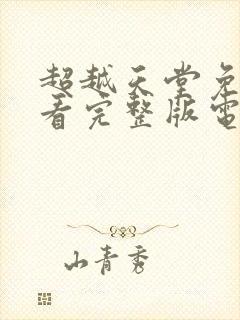 超越天堂免
看完整版電
山青秀